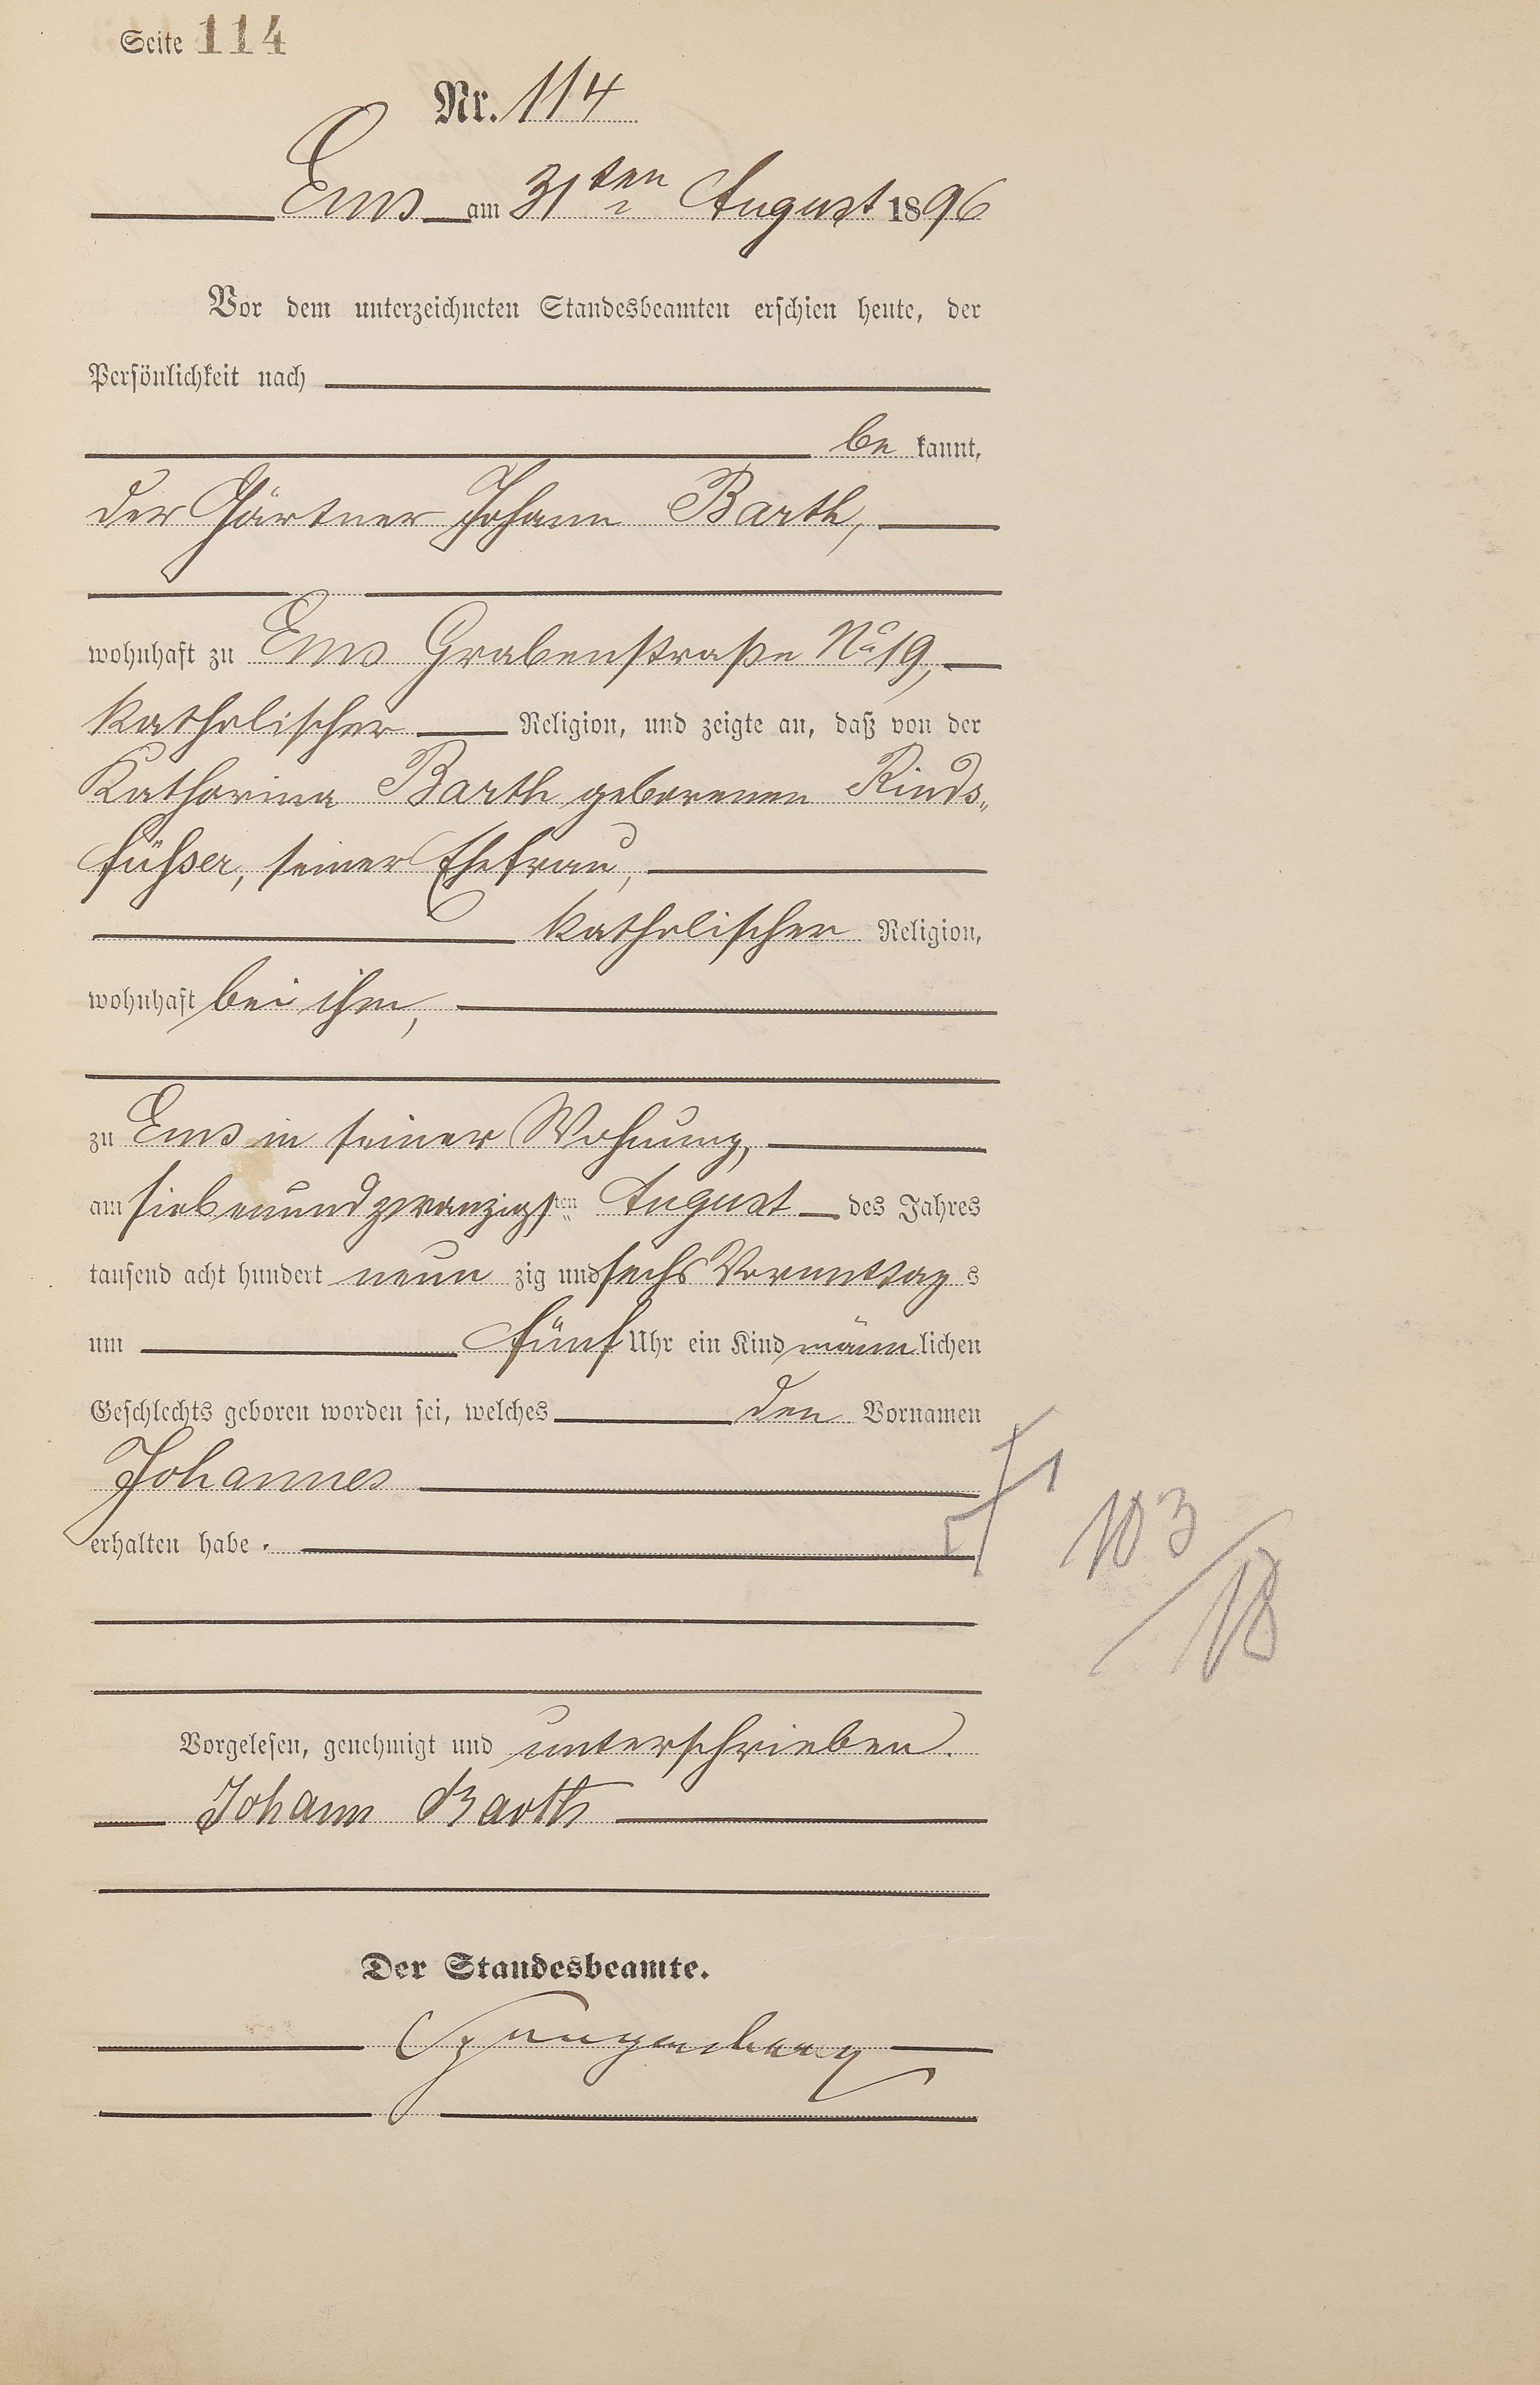 Seite 114
Nr. 114
Ems am 31ten August 1896
Vor dem unterzeichneten Standesbeamten erschien heute, der
Persönlichkeit nach
be kannt,
der Gärtner Johann Barth,
wohnhaft zu Ems Grabenstraße No 19,
katholischer Religion, und zeigte an, daß von der
Katharina Barth geborenen Rinds„
füßser, seiner Ehefrau,
katholischer Religion,
wohnhaft bei ihm,
zu Ems in seiner Wohnung,
am siebenundzwanzigsten August des Jahres
tausend acht hundert neun zig und sechs Vormittag s
um fünf Uhr ein Kind männ lichen
Geschlechts geboren worden sei, welches den Vornamen
Johannes
erhalten habe.
† 1
103/18
Vorgelesen, genehmigt und unterschrieben.
Johann Barth
Der Standesbeamte.
Spangenberg